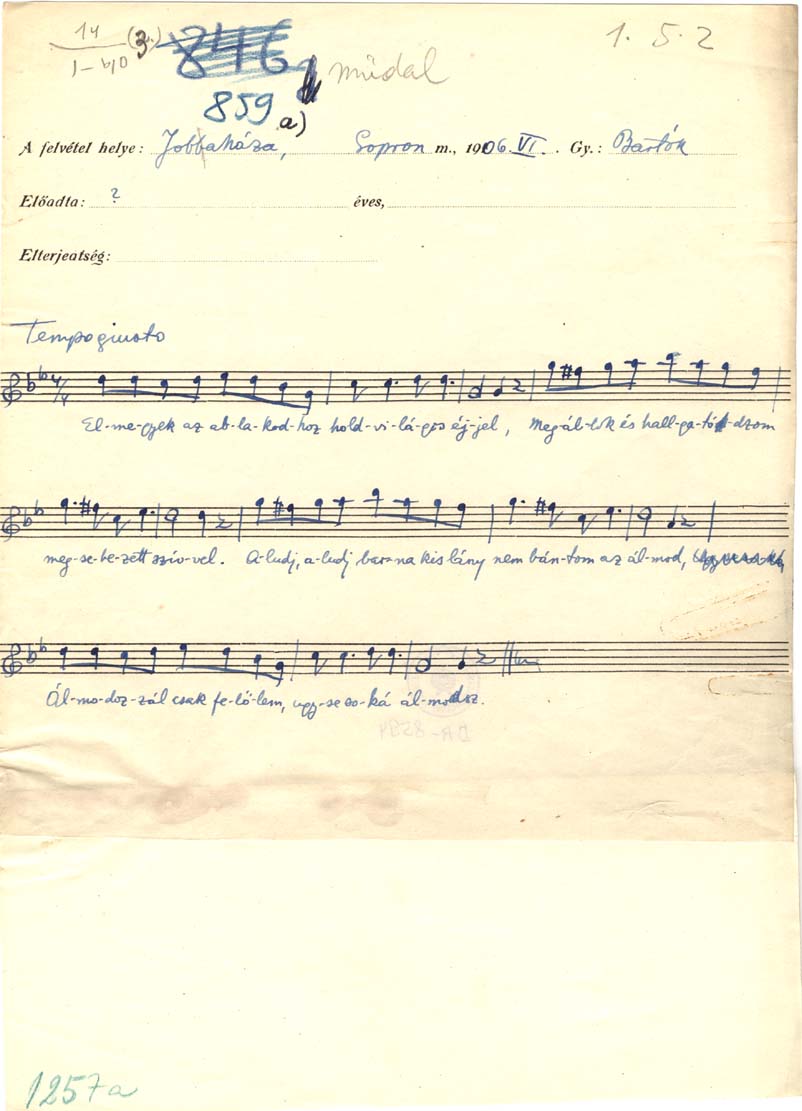 14 (3.) 846 1. 5. 2
műdal
859 a)
A felvétel helye: Jobbaháza, Sopron m., 1906. VI. Gy.: Bartók
Előadta: ? éves,
Elterjedtség:
Tempo giusto
4/4
El-me-gyek az ab-la-kod-hoz hold-vi-lá-gos éj-jel, Meg-ál-lok és hall-ga-tó-dzom
meg-se-be-zett szív-vel. A-ludj, a-ludj bar-na kis lány nem bán-tom az ál-mod,
Ál-mo-doz-zál csak fe-lő-lem, ugy-se so-ká ál-modsz.
1257a